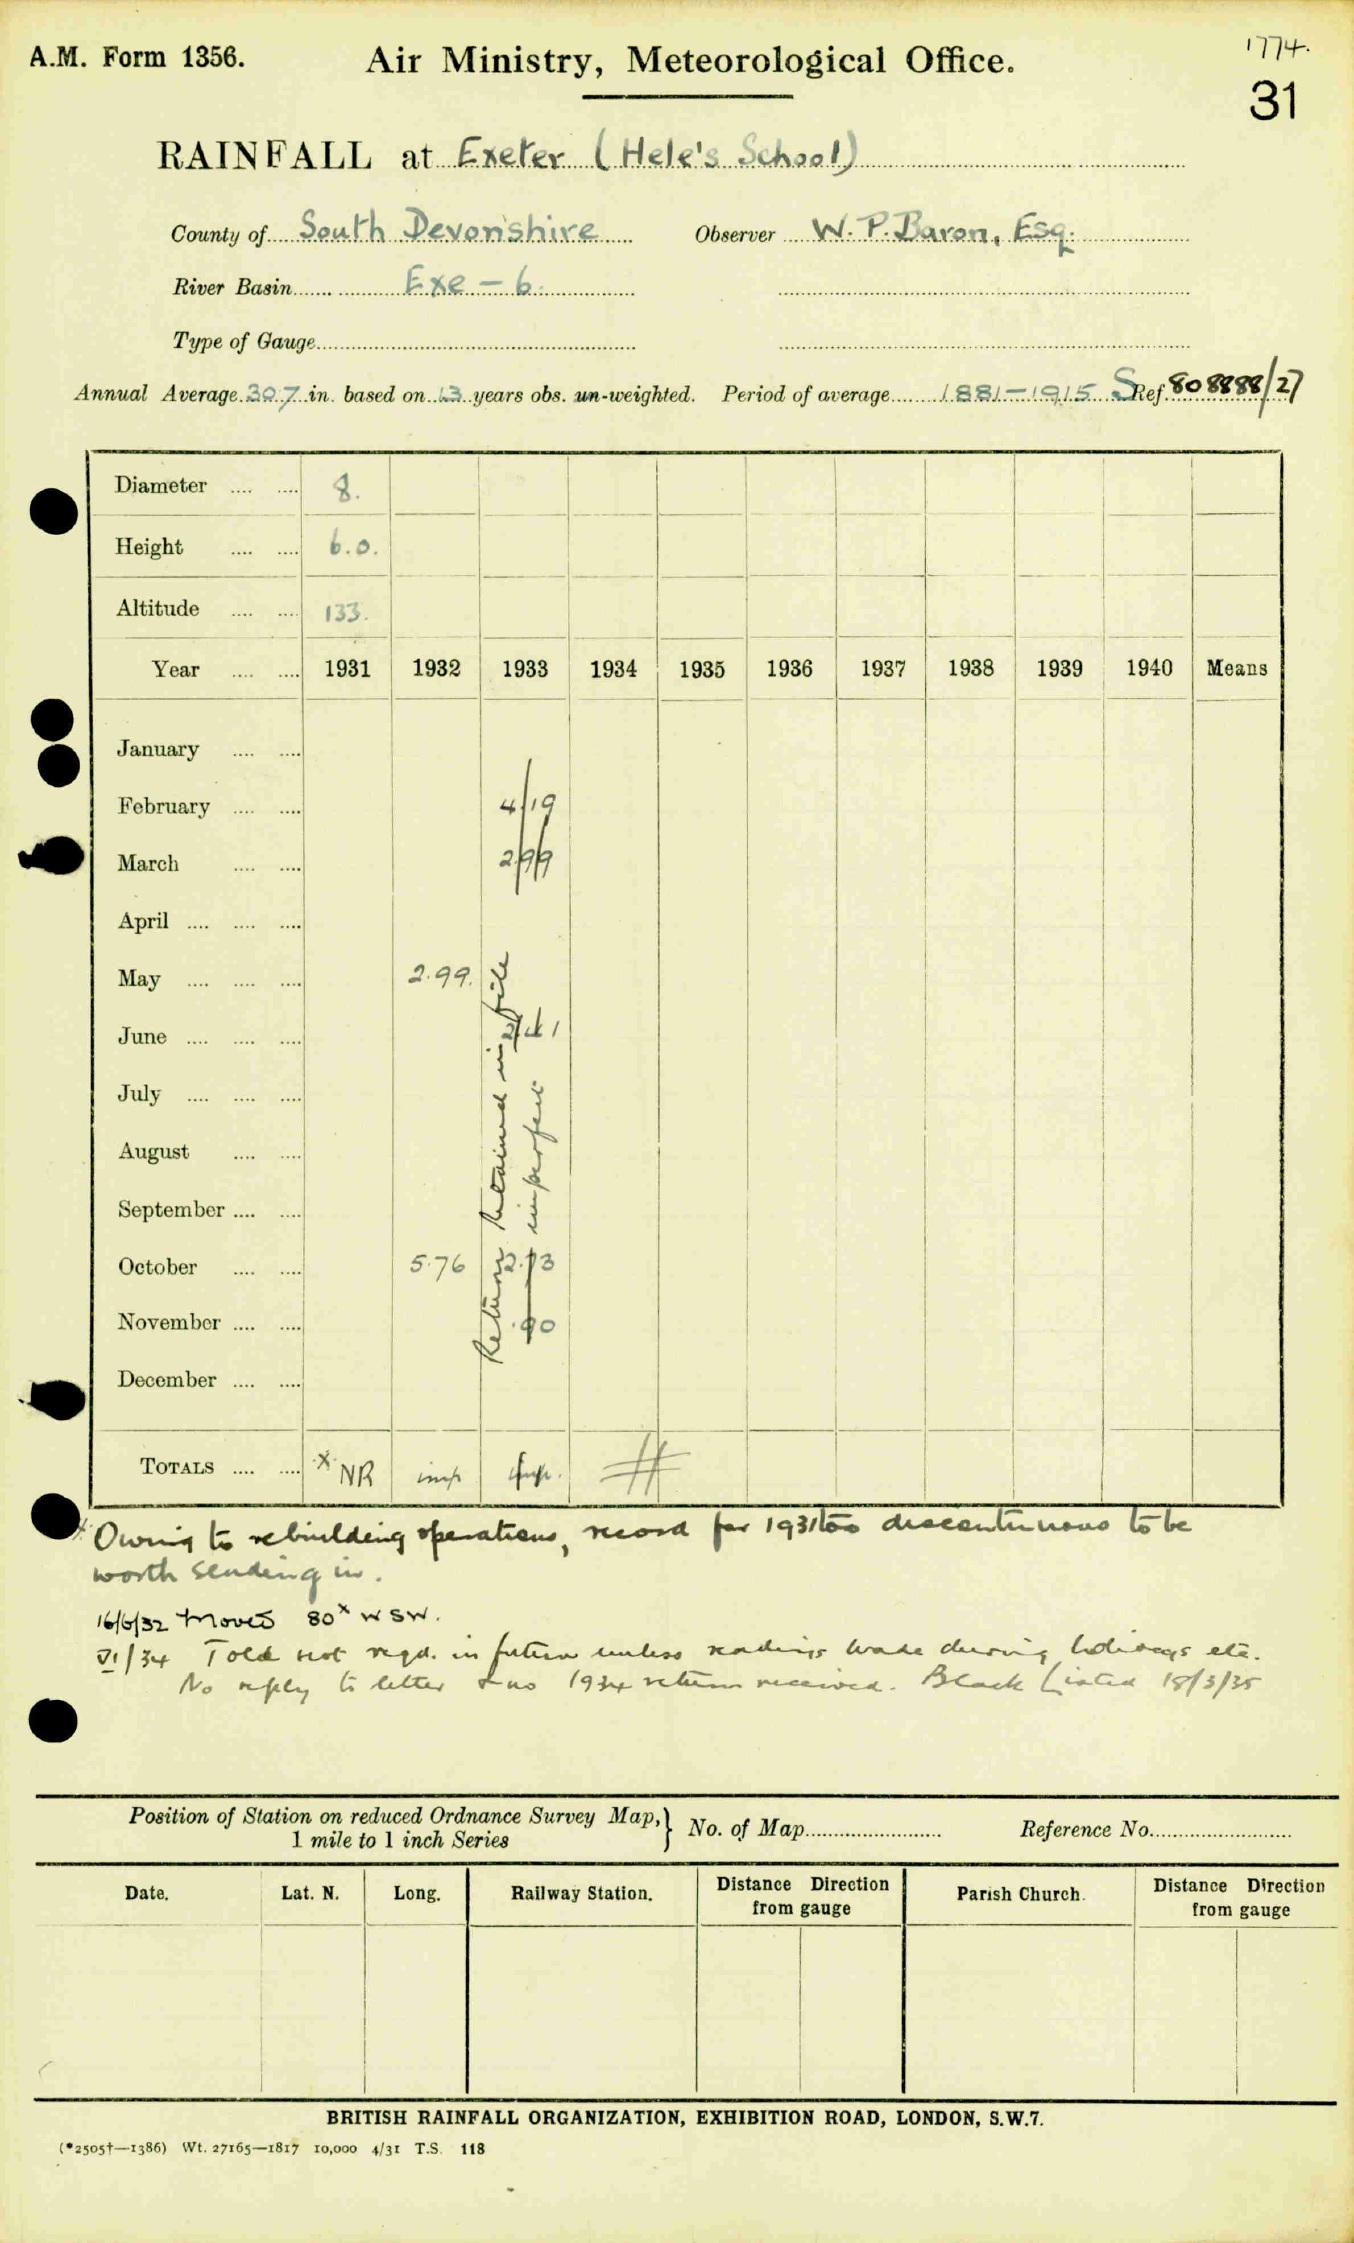 A.M. Form 1356.
Air Ministry, Meteorological Office.
1774.
31
RAINFALL at Exeter (Hele's School)
County of South Devonshire Observer W. P. Baron, Esq.
River Basin Exe - 6.
Type of Gauge
Annual Average 30.7 in. based on 13 years obs. un-weighted. Period of average 1881-1915 S Ref. 808888/27
Diameter 8.
Height 6.0.
Altitude 133.
Year 1931 1932 1933 1934 1935 1936 1937 1938 1939 1940 Means
January
February 4.19
March 2.99
April
May 2.99.
June 2.41
July
August
September
October 5.76 2.73
November .90
December
Return retained in file
imperfect
TOTALS x NR imp imp.
x Owing to rebuilding operations, record for 1931 too discontinuous to be
worth sending in.
16/6/32 Moved 80x WSW.
VI/34 Told not reqd. in future unless readings made during holidays etc.
No reply to letter & no 1934 return received. Black Listed 18/3/35
Position of Station on reduced Ordnance Survey Map,} No. of Map Reference No.
1 mile to 1 inch Series
Date. Lat. N. Long. Railway Station. Distance Direction from gauge Parish Church. Distance Direction from gauge
BRITISH RAINFALL ORGANIZATION, EXHIBITION ROAD, LONDON, S.W.7.
(*2505†—1386) Wt. 27165—1817 10,000 4/31 T.S. 118